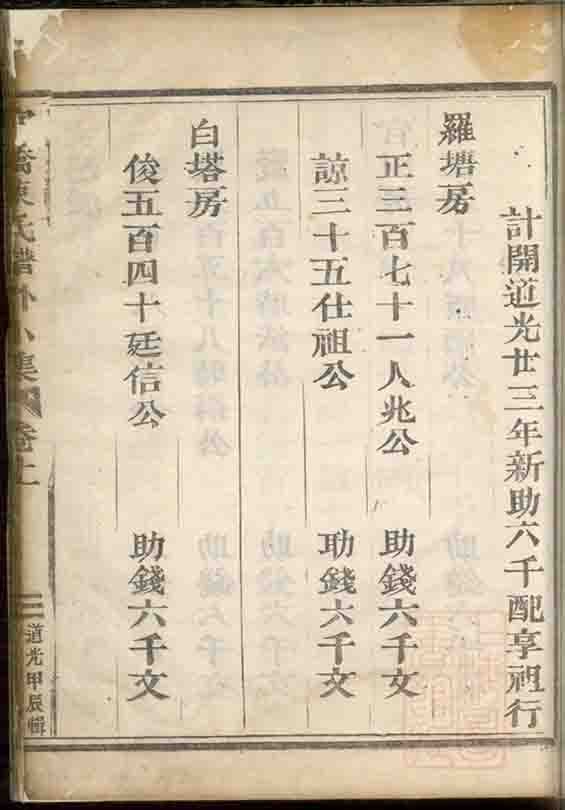 計開道光廿三年新助六千配享祖行
羅塘房
正三百七十一人兆公　助錢六千文
諒三十五仕祖公　助錢六千文
白塔房
俊五百四十廷信公　助錢六千文
橋陳氏譜外小集　卷上
道光甲辰輯